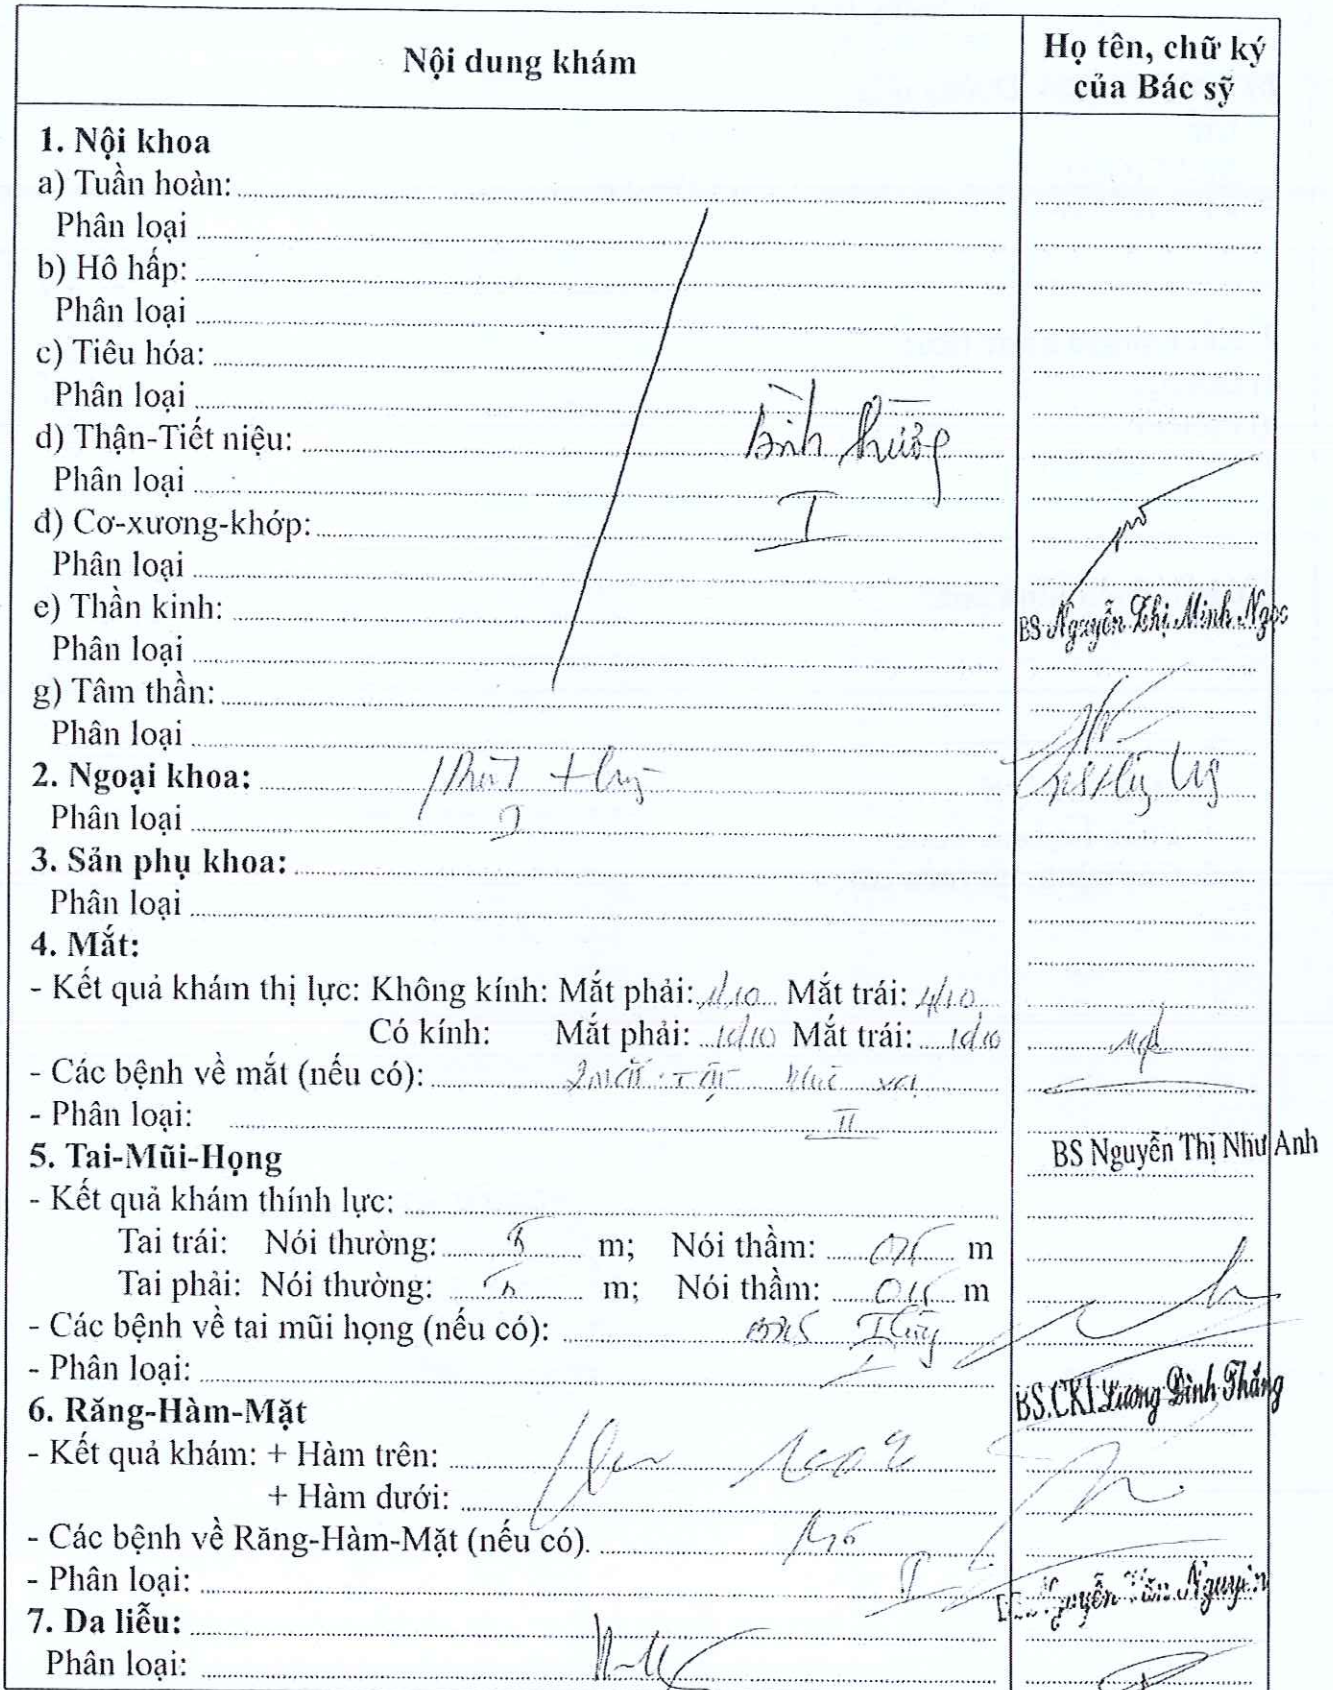 Nội dung khám
Họ tên, chữ ký
của Bác sỹ
1. Nội khoa
a) Tuần hoàn:
Phân loại
b) Hô hấp:
Phân loại
c) Tiêu hóa:
Phân loại
d) Thận-Tiết niệu: Bình thường
Phân loại I
đ) Cơ-xương-khớp:
Phân loại
e) Thần kinh:
BS Nguyễn Thị Minh Ngọc
Phân loại
g) Tâm thần:
Phân loại
2. Ngoại khoa:
Phân loại I
3. Sản phụ khoa:
Phân loại
4. Mắt:
- Kết quả khám thị lực: Không kính: Mắt phải: Mắt trái: 4/10
Có kính: Mắt phải: 10/10 Mắt trái: 10/10
- Các bệnh về mắt (nếu có): 2 mắt tật khúc xạ
- Phân loại: II
BS Nguyễn Thị Như Anh
5. Tai-Mũi-Họng
- Kết quả khám thính lực:
Tai trái: Nói thường: 5 m; Nói thầm: 0,5 m
Tai phải: Nói thường: 5 m; Nói thầm: 0,5 m
- Các bệnh về tai mũi họng (nếu có):
- Phân loại: I
BS.CKI Lương Đình Thắng
6. Răng-Hàm-Mặt
- Kết quả khám: + Hàm trên:
+ Hàm dưới:
- Các bệnh về Răng-Hàm-Mặt (nếu có).
- Phân loại: I
Nguyễn Văn Nguyên
7. Da liễu:
Phân loại: